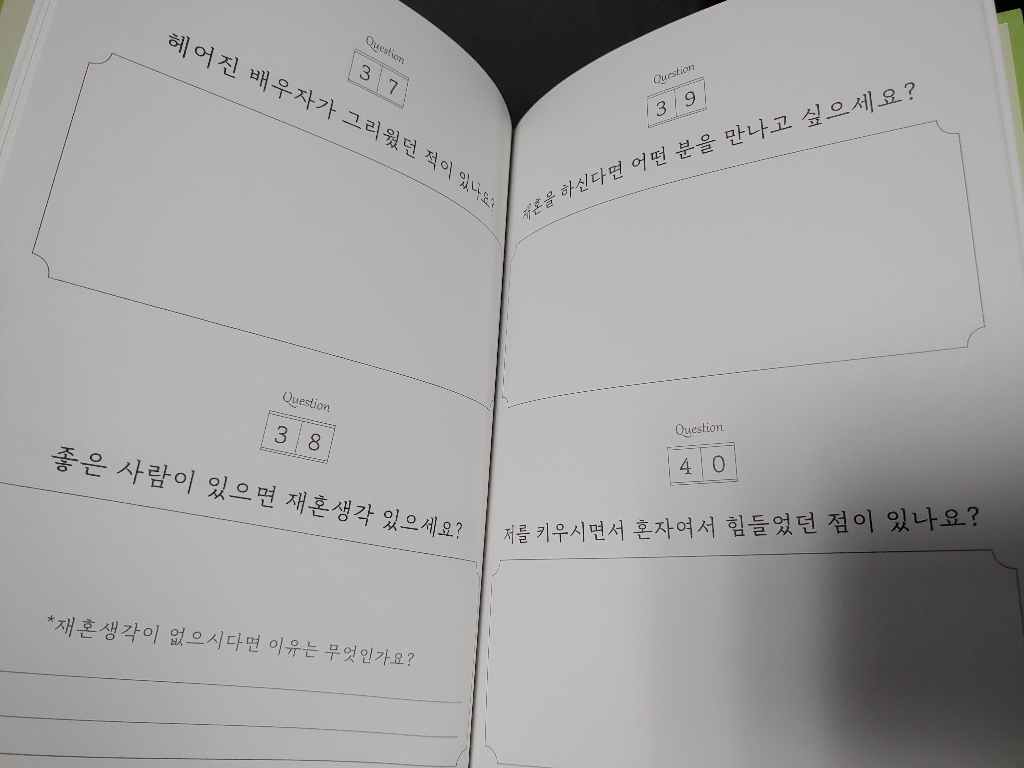 Question
37
헤어진 배우자가 그리웠던 적이 있나요?
Question
38
좋은 사람이 있으면 재혼생각 있으세요?
*재혼생각이 없으시다면 이유는 무엇인가요?
Question
39
재혼을 하신다면 어떤 분을 만나고 싶으세요?
Question
40
저를 키우시면서 혼자여서 힘들었던 점이 있나요?